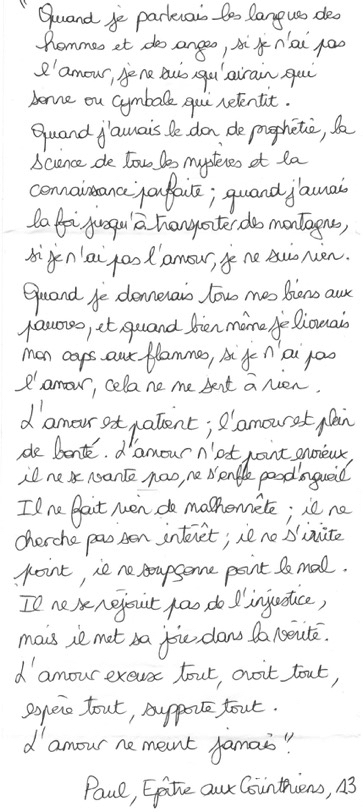 "Quand je parlerais les langues des
hommes et des anges, si je n'ai pas
l'amour, je ne suis qu'airain qui
sonne ou cymbale qui retentit.
Quand j'aurais le don de prophétie, la
science de tous les mystères et la
connaissance parfaite ; quand j'aurais
la foi jusqu'à transporter des montagnes,
si je n'ai pas l'amour, je ne suis rien.
Quand je donnerais tous mes biens aux
pauvres, et quand bien même je livrerais
mon corps aux flammes, si je n'ai pas
l'amour, cela ne me sert à rien.
L'amour est patient ; l'amour est plein
de bonté. L'amour n'est point envieux,
il ne se vante pas, ne s'enfle pas d'orgueil
Il ne fait rien de malhonnête ; il ne
cherche pas son intérêt ; il ne s'irrite
point, il ne soupçonne point le mal.
Il ne se réjouit pas de l'injustice,
mais il met sa joie dans la vérité.
L'amour excuse tout, croit tout,
espère tout, supporte tout.
L'amour ne meurt jamais".
Paul, Epître aux Corinthiens, 13